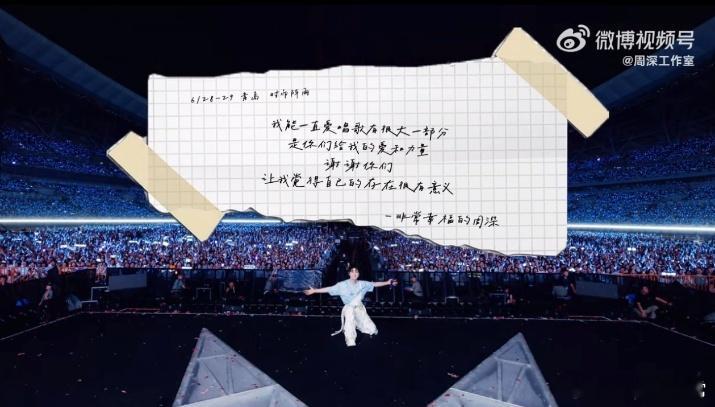 微博视频号
@周深工作室
6/28-29 青岛 时而阵雨
我能一直爱唱歌有很大一部分
是你们给我的爱和力量
谢谢你们
让我觉得自己的存在很有意义
-非常幸福的周深